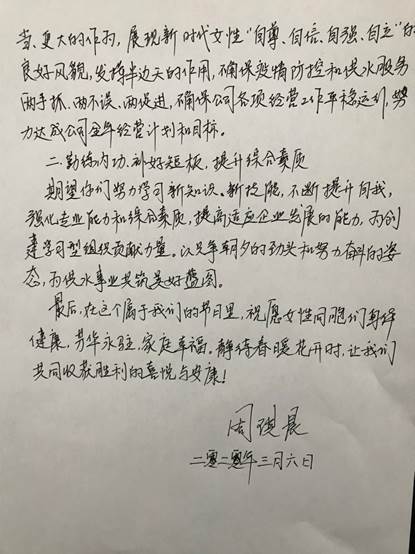 当、更大的作为，展现新时代女性“自尊、自信、自强、自立”的
良好风貌，发挥半边天的作用，确保疫情防控和供水服务
两手抓、两不误、两促进，确保公司各项经营工作平稳运行，努
力达成公司全年经营计划和目标。
二、勤练内功、补好短板，提升综合素质
期望你们努力学习新知识、新技能，不断提升自我，
强化专业能力和综合素质，提高适应企业发展的能力，为创
建学习型组织贡献力量。以只争朝夕的劲头和努力奋斗的姿
态，为供水事业共筑美好蓝图。
最后，在这个属于我们的节日里，祝愿女性同胞们身体
健康，芳华永驻，家庭幸福。静待春暖花开时，让我们
共同收获胜利的喜悦与安康！
周 晨
二零二零年三月六日